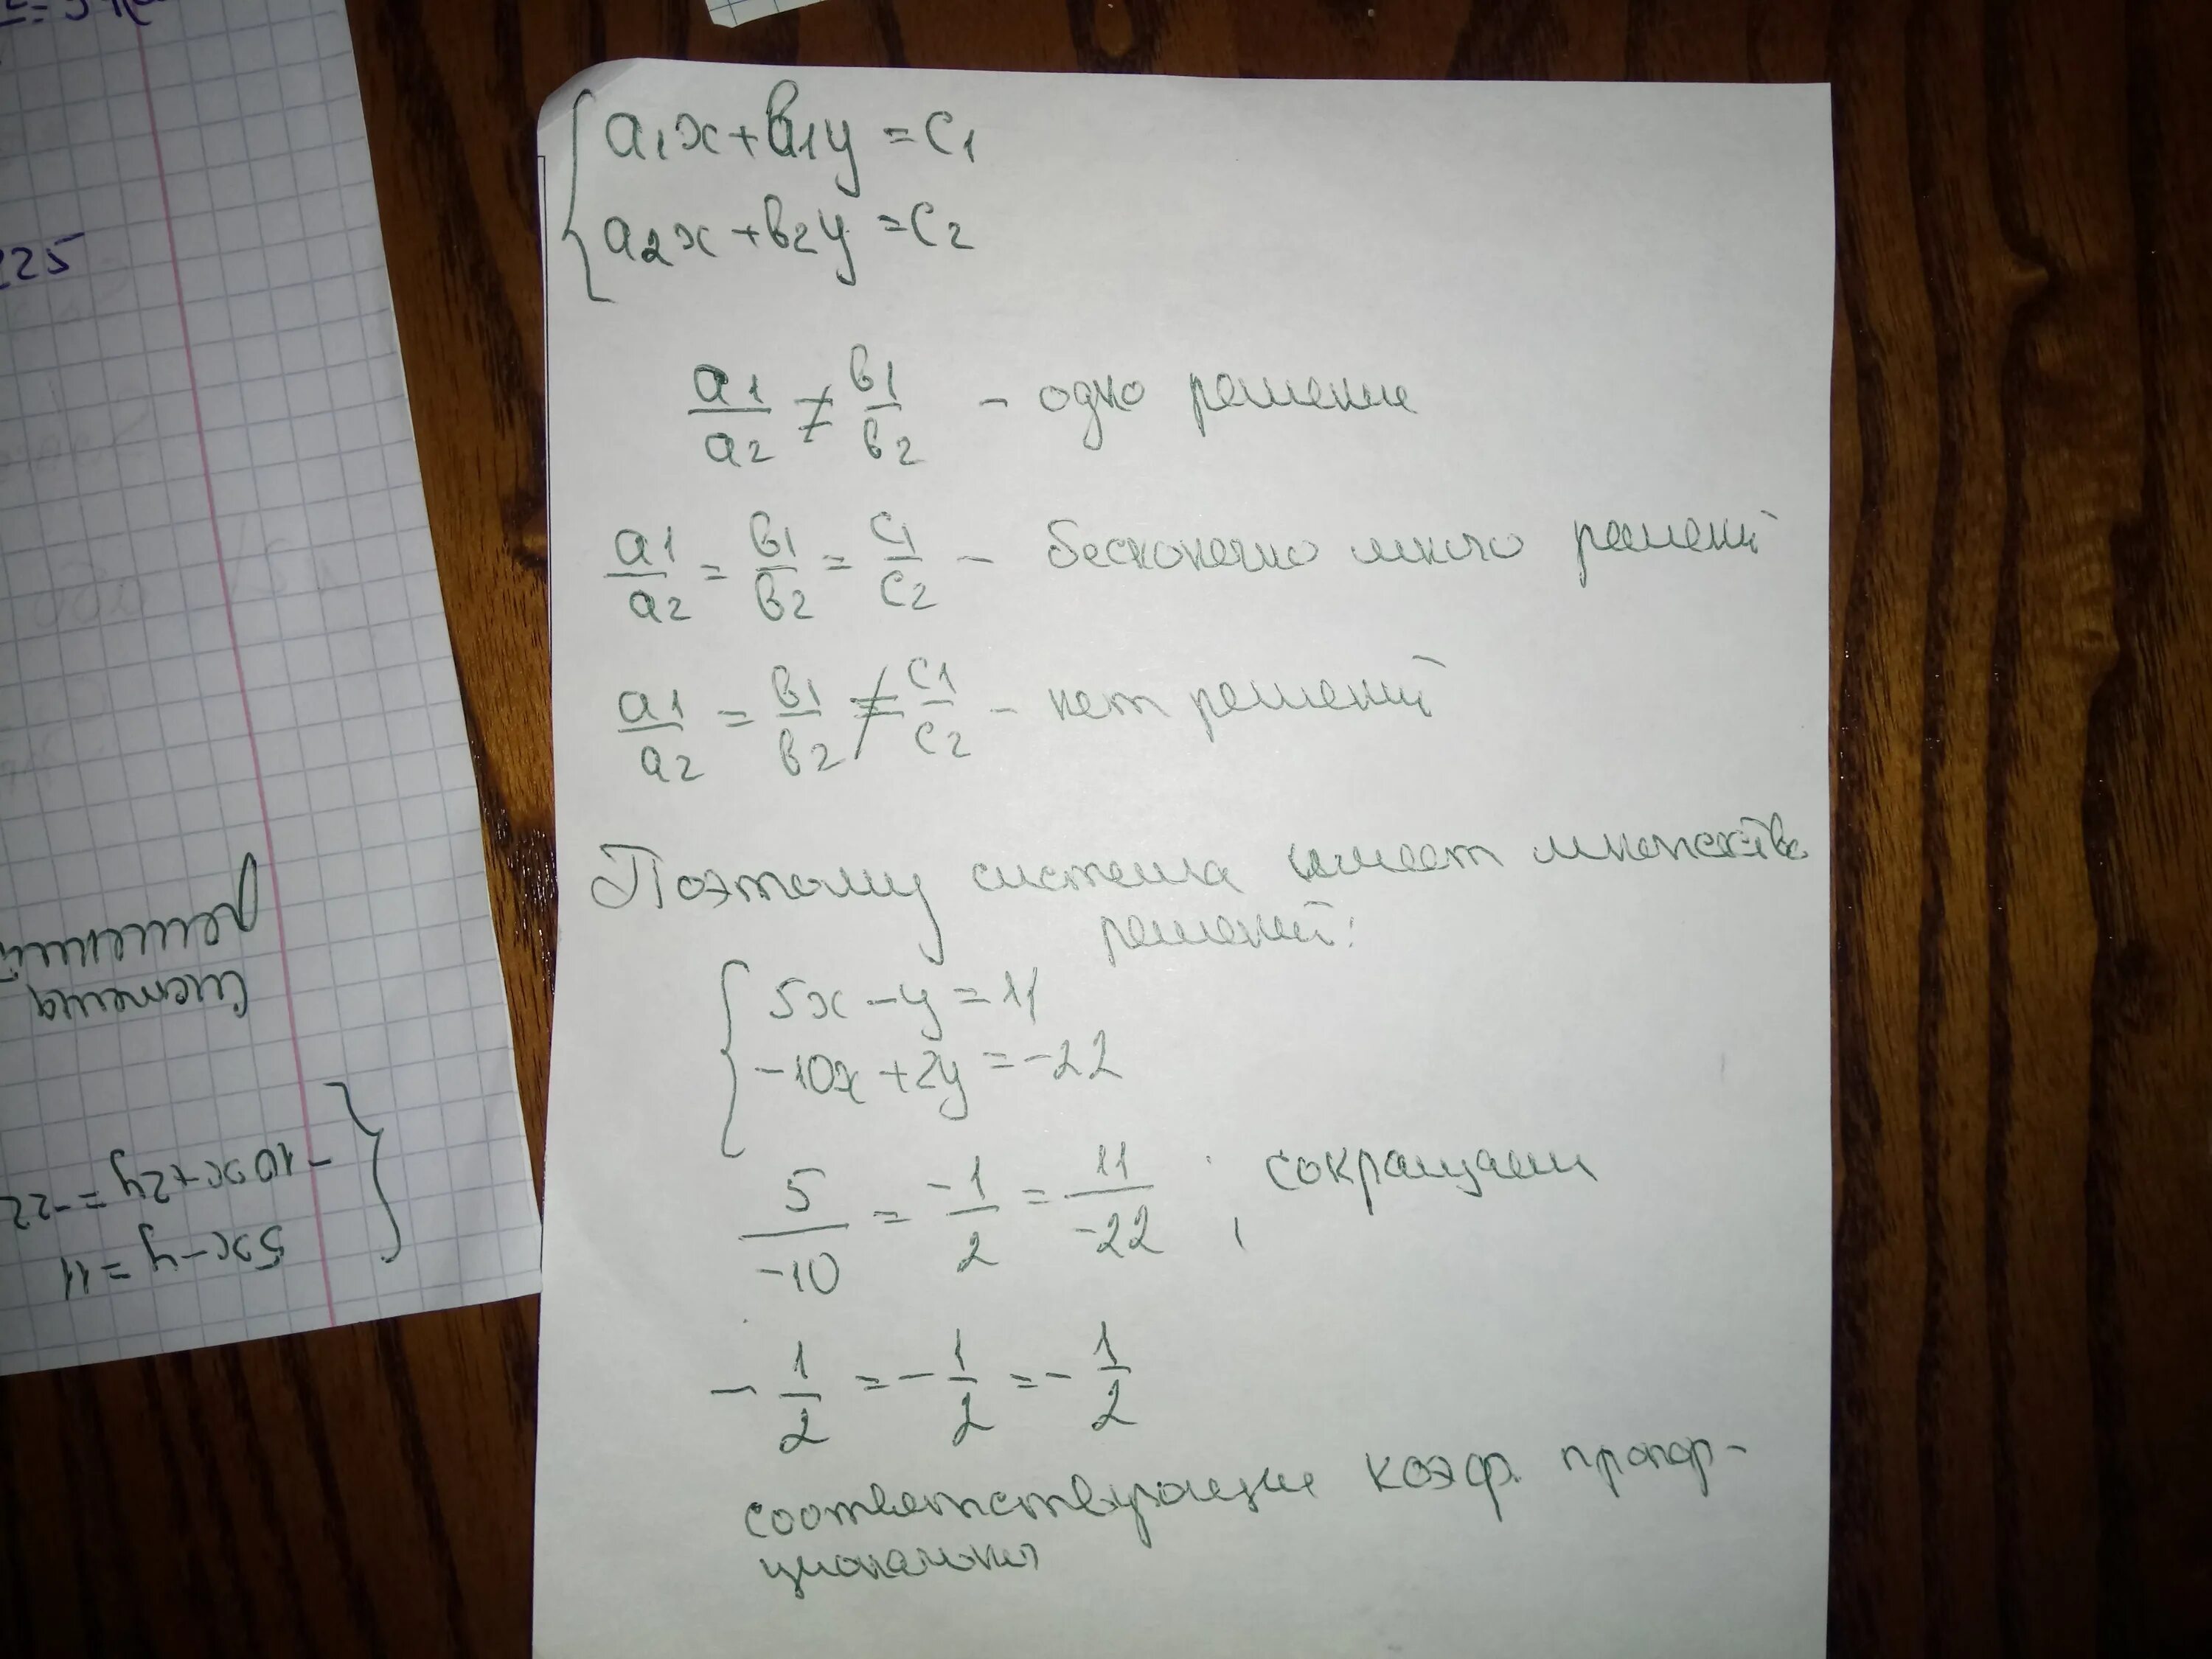 a₁x + b₁y = c₁
a₂x + b₂y = c₂
a₁/a₂ ≠ b₁/b₂ - одно решение
a₁/a₂ = b₁/b₂ = c₁/c₂ - бесконечно много решений
a₁/a₂ = b₁/b₂ ≠ c₁/c₂ - нет решений
Поэтому система имеет множество
решений:
5x - y = 11
-10x + 2y = -22
5/-10 = -1/2 = 11/-22 ; сокращаем
- 1/2 = - 1/2 = - 1/2
соответствующие коэф. пропор-
циональны
225
5x - y = 11
-10x + 2y = -22
Система
решений